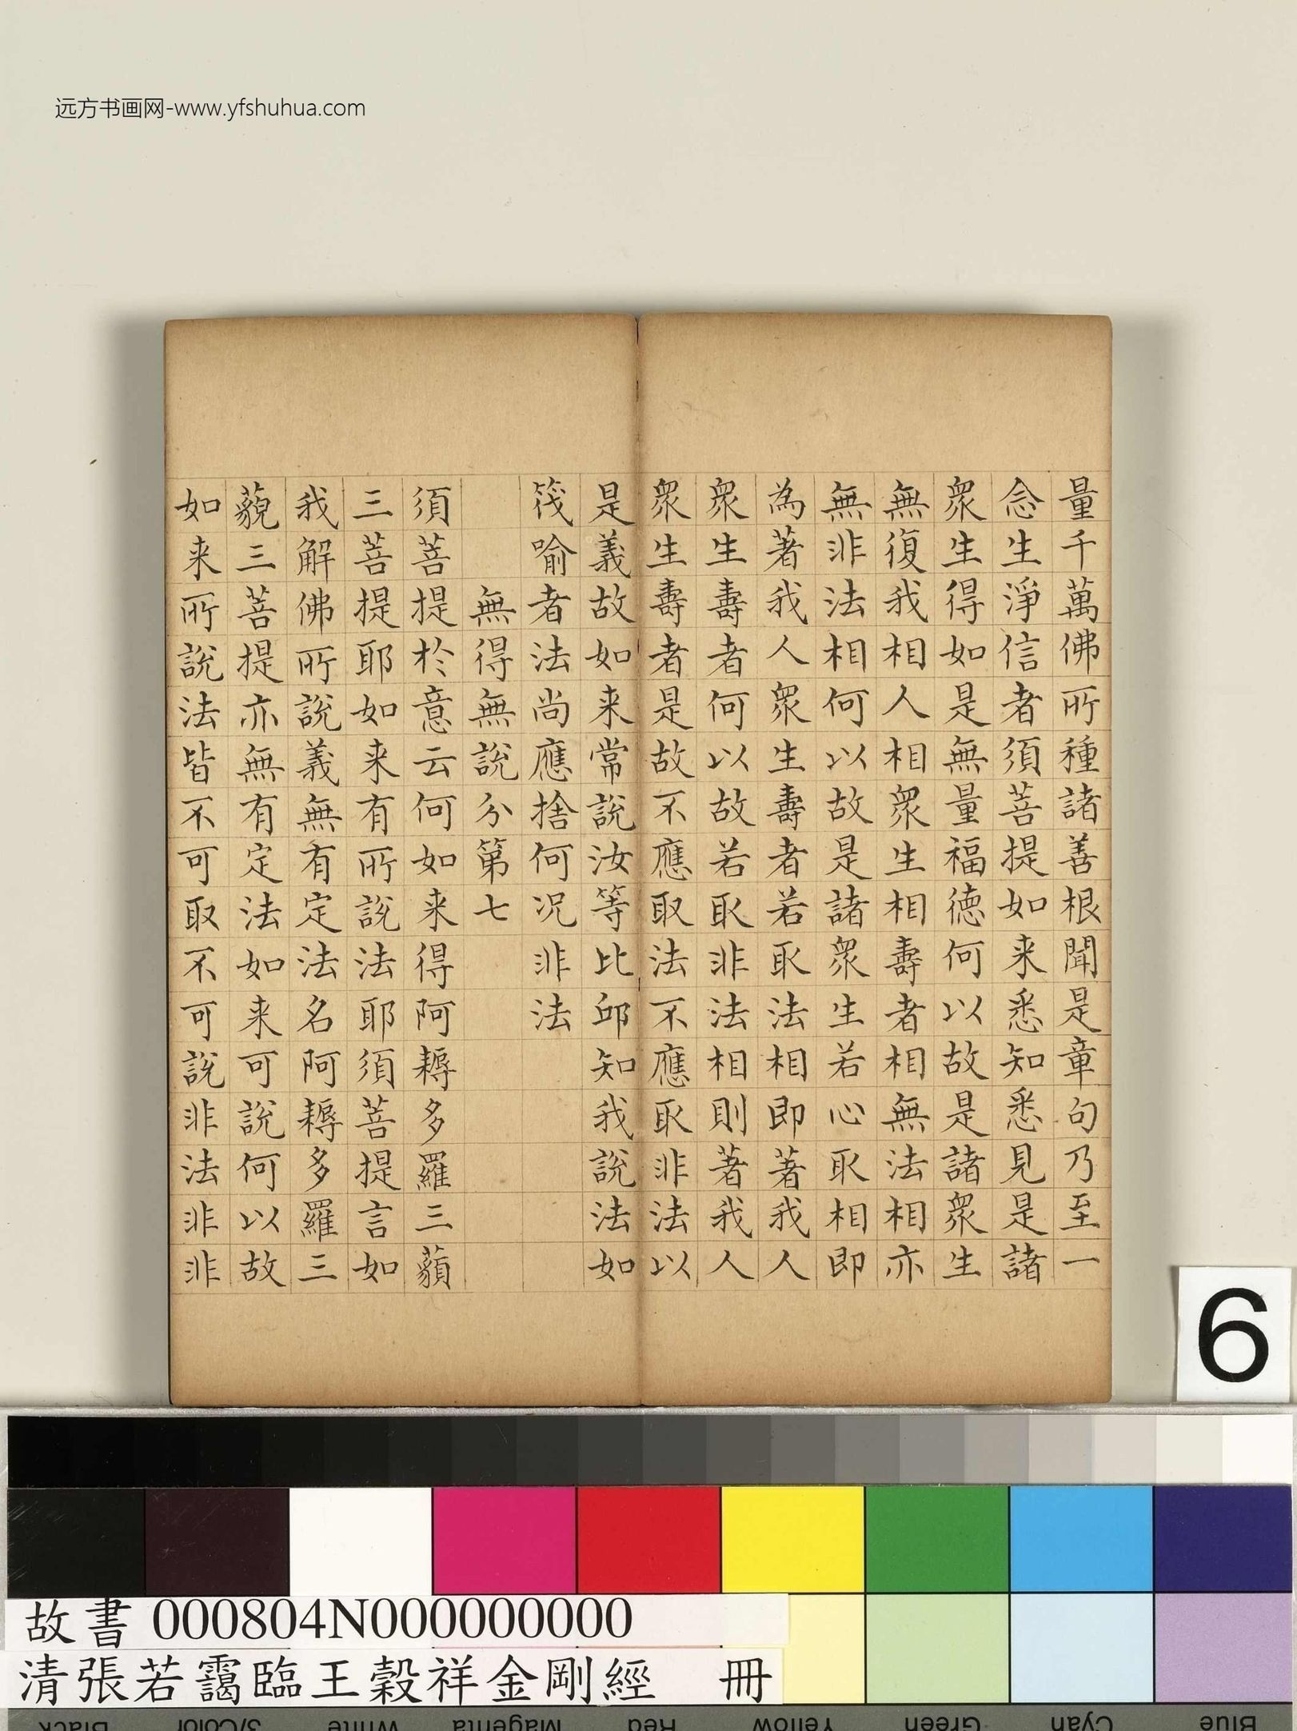 远方书画网-www.yfshuhua.com
量千萬佛所種諸善根聞是章句乃至一
念生淨信者須菩提如来悉知悉見是諸
衆生得如是無量福德何以故是諸衆生
無復我相人相衆生相壽者相無法相亦
無非法相何以故是諸衆生若心取相即
為著我人衆生壽者若取法相即著我人
衆生壽者何以故若取非法相則著我人
衆生壽者是故不應取法不應取非法以
是義故如来常說汝等比邱知我說法如
筏喻者法尚應捨何况非法
無得無說分第七
須菩提於意云何如来得阿耨多羅三藐
三菩提耶如来有所說法耶須菩提言如
我解佛所說義無有定法名阿耨多羅三
藐三菩提亦無有定法如来可說何以故
如来所說法皆不可取不可說非法非非
6
故書 000804N000000000
清張若靄臨王穀祥金剛經 冊
Black 3/Color White Magenta Red Yellow Green Cyan Blue